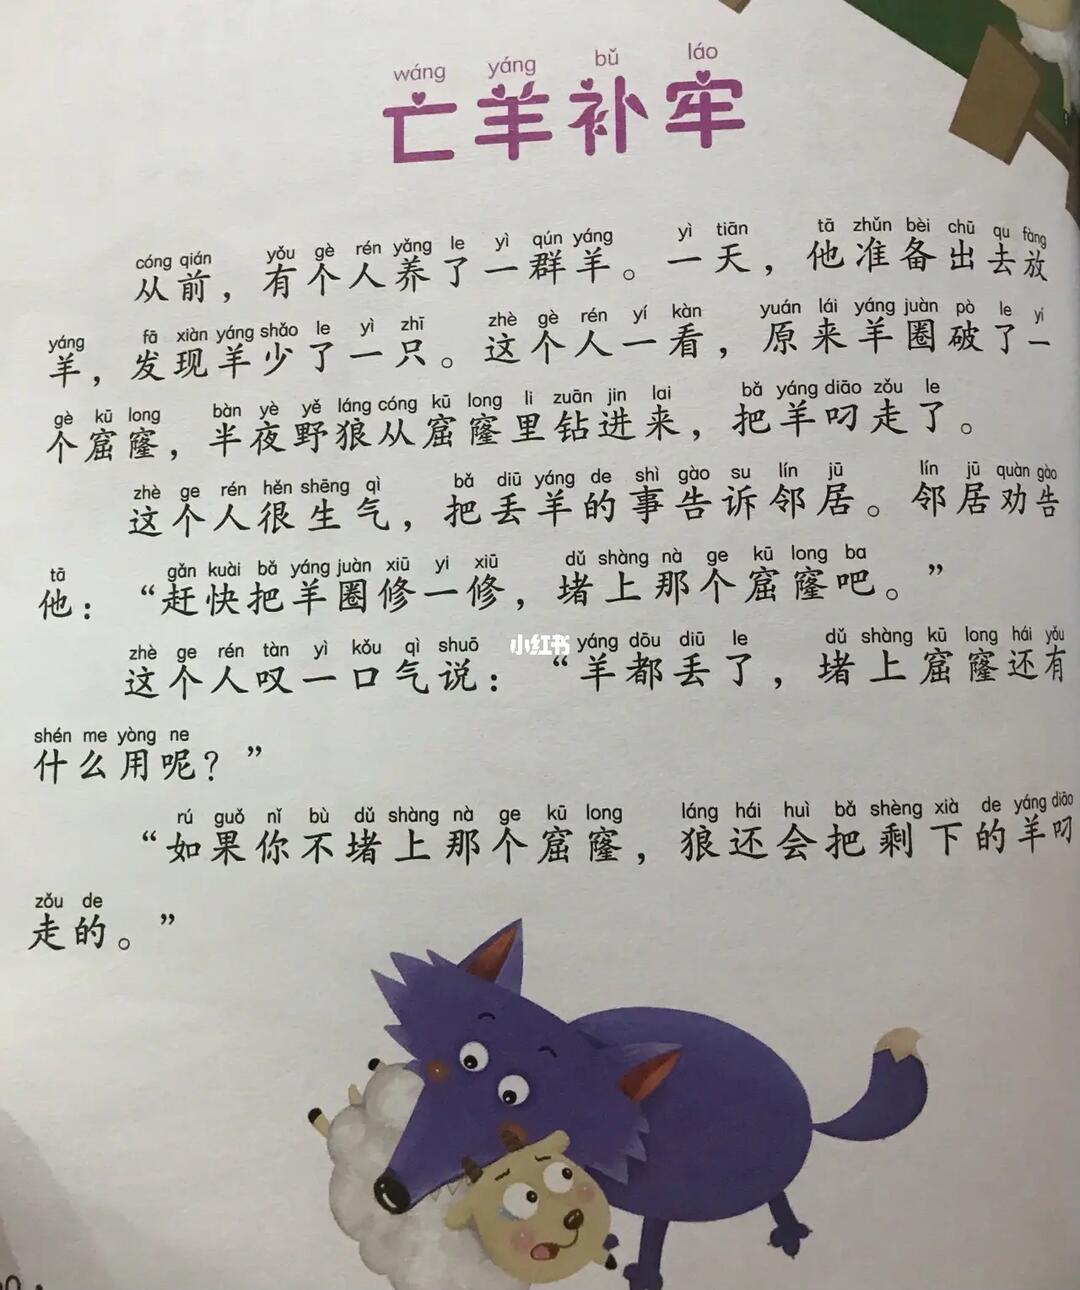 wáng yáng bǔ láo
亡羊补牢
cóng qián yǒu gè rén yǎng le yì qún yáng yì tiān tā zhǔn bèi chū qu fàng
从前，有个人养了一群羊。一天，他准备出去放
yáng fā xiàn yáng shǎo le yì zhī zhè gè rén yí kàn yuán lái yáng juàn pò le yí
羊，发现羊少了一只。这个人一看，原来羊圈破了一
gè kū long bàn yè yě láng cóng kū long li zuān jin lai bǎ yáng diāo zǒu le
个窟窿，半夜野狼从窟窿里钻进来，把羊叼走了。
zhè ge rén hěn shēng qì bǎ diū yáng de shì gào su lín jū lín jū quàn gào
这个人很生气，把丢羊的事告诉邻居。邻居劝告
tā gǎn kuài bǎ yáng juàn xiū yi xiū dǔ shàng nà ge kū long ba
他：“赶快把羊圈修一修，堵上那个窟窿吧。”
zhè ge rén tàn yì kǒu qì shuō yáng dōu diū le dǔ shàng kū long hái yǒu
这个人叹一口气说：“羊都丢了，堵上窟窿还有
小红书
shén me yòng ne
什么用呢？”
rú guǒ nǐ bù dǔ shàng nà ge kū long láng hái huì bǎ shèng xià de yáng diāo
“如果你不堵上那个窟窿，狼还会把剩下的羊叼
zǒu de
走的。”